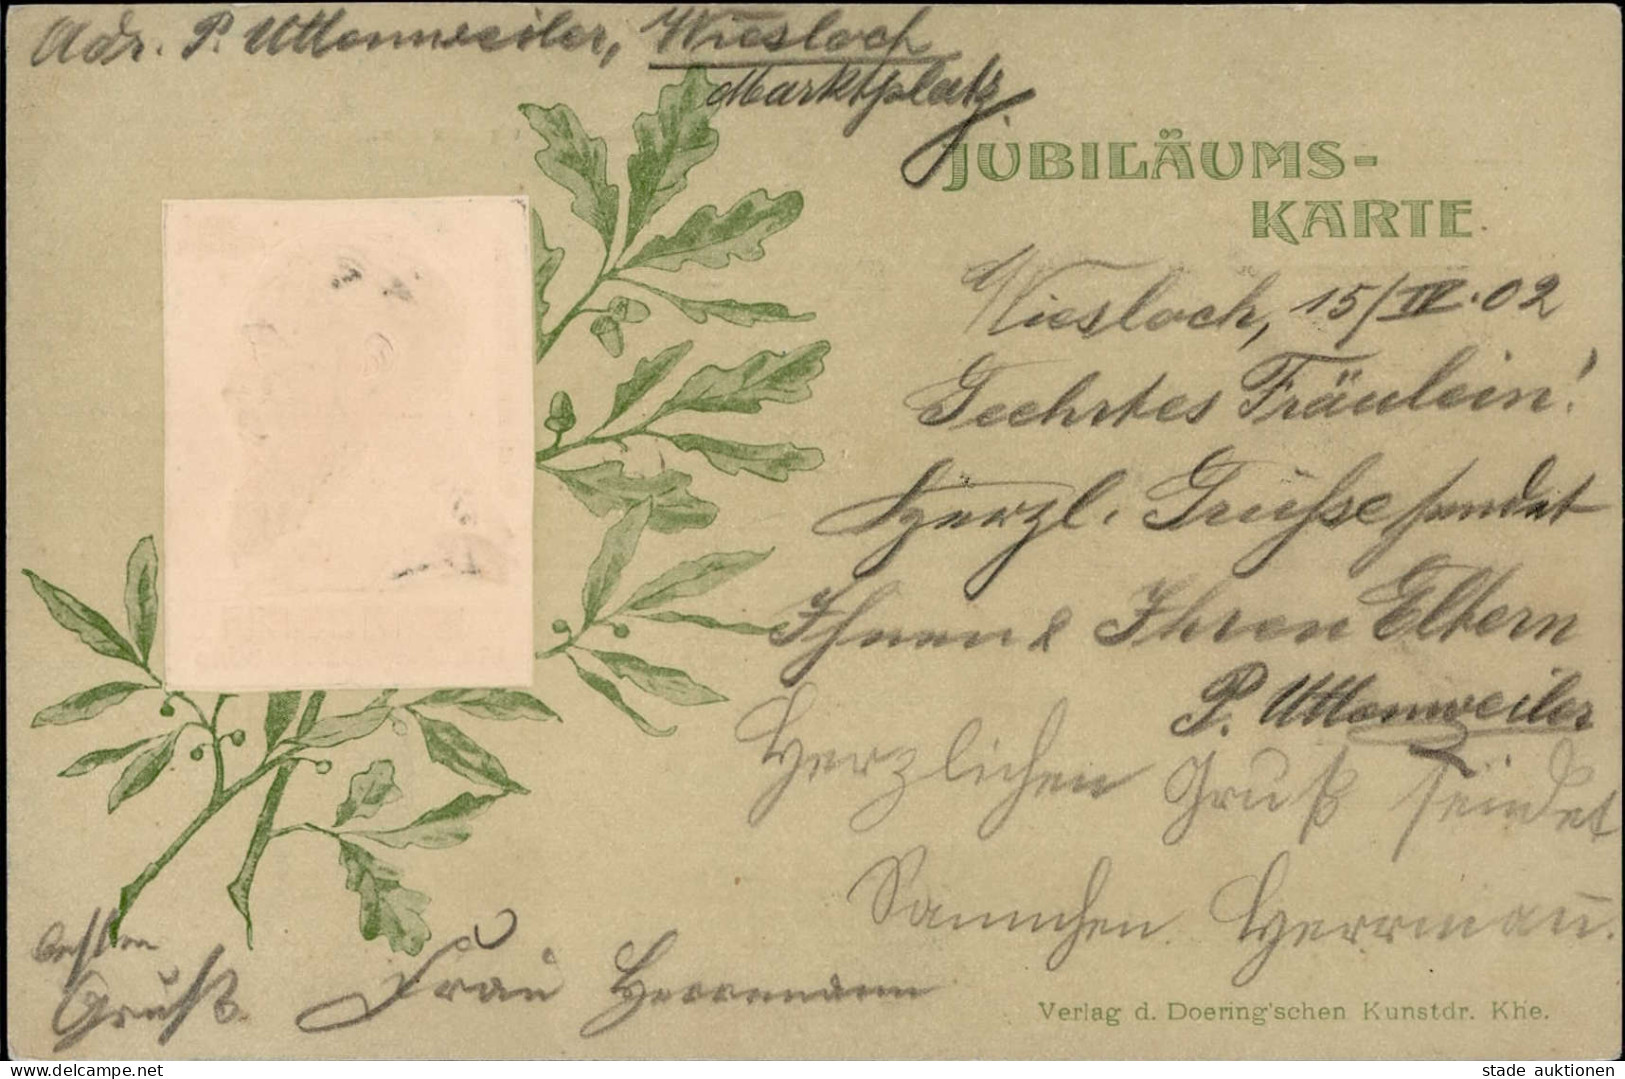 Adr. P. Uttenweiler, Wiesloch
Marktplatz
JUBILÄUMS-
KARTE.
Wiesloch, 15/IV. 02
Geehrtes Fräulein!
Herzl. Grüsse sendet
Ihnen & Ihren Eltern
P. Uttenweiler
Herzlichen Gruß sendet
Sannchen Herrmann.
besten
Gruß. Frau Herrmann
Verlag d. Doering'schen Kunstdr. Khe.
www.delcampe.net
stade auktionen